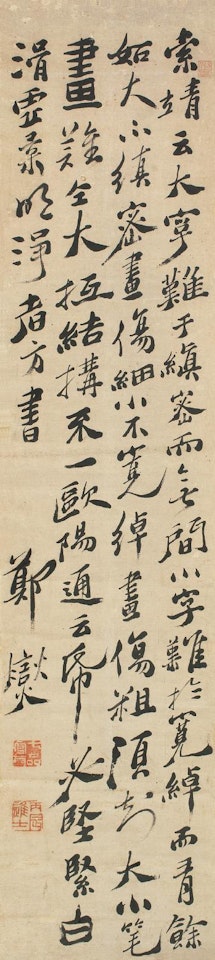 索靖云大字難于縝密而無間小字難於寬綽而有餘
如大不縝密畫傷細小不寬綽畫傷粗須知大小笔
畫雖仝大抵結搆不一歐陽通云紙必堅緊白
滑虚柔明淨者方書
鄭燮